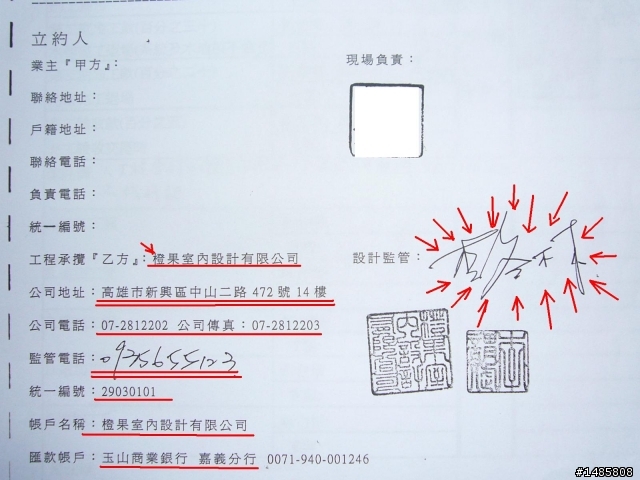 立約人
業主『甲方』：
現場負責：
聯絡地址：
戶籍地址：
聯絡電話：
負責電話：
統一編號：
工程承攬『乙方』：橙果室內設計有限公司
設計監管：
公司地址：高雄市新興區中山二路 472 號 14 樓
公司電話：07-2812202 公司傳真：07-2812203
監管電話：0975655123
統一編號：29030101
帳戶名稱：橙果室內設計有限公司
匯款帳戶：玉山商業銀行 嘉義分行 0071-940-001246
#1485808